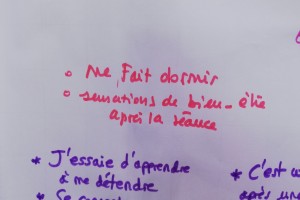 o me fait dormir
o sensations de bien-être
après la séance
* J'essaie d'apprendre
à me détendre
* C'est
après une
* Se